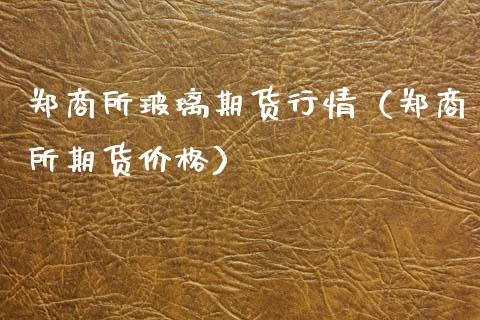 郑商所玻璃期货行情（郑商
所期货价格）